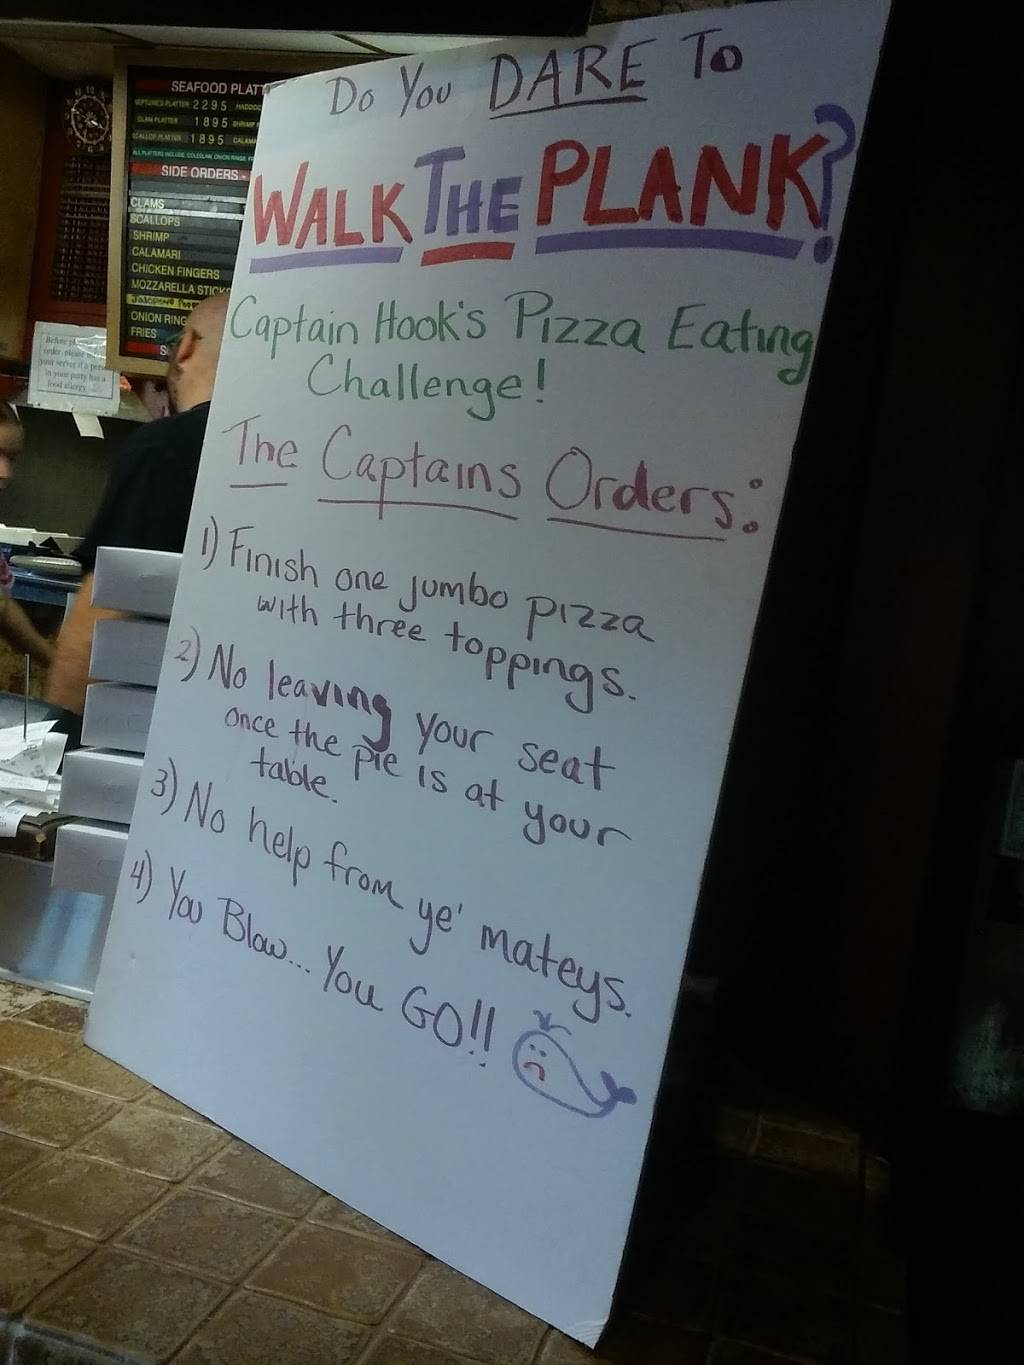 Do You DARE To
WALK THE PLANK?
Captain Hook's Pizza Eating
Challenge!
The Captains Orders:
1) Finish one jumbo pizza
with three toppings.
2) No leaving your seat
once the pie is at your
table.
3) No help from ye' mateys.
4) You Blow... You GO!!
SEAFOOD PLATT
NEPTUNES PLATTER 2295 HADDOC
CLAM PLATTER 1895 SHRIMP
SCALLOP PLATTER 1895 CALAMA
ALL PLATTERS INCLUDE COLESLAW, ONION RINGS,
SIDE ORDERS -
CLAMS
SCALLOPS
SHRIMP
CALAMARI
CHICKEN FINGERS
MOZZARELLA STICKS
ONION RING
FRIES
Before
order please
your server if a
in your party has a
food allergy